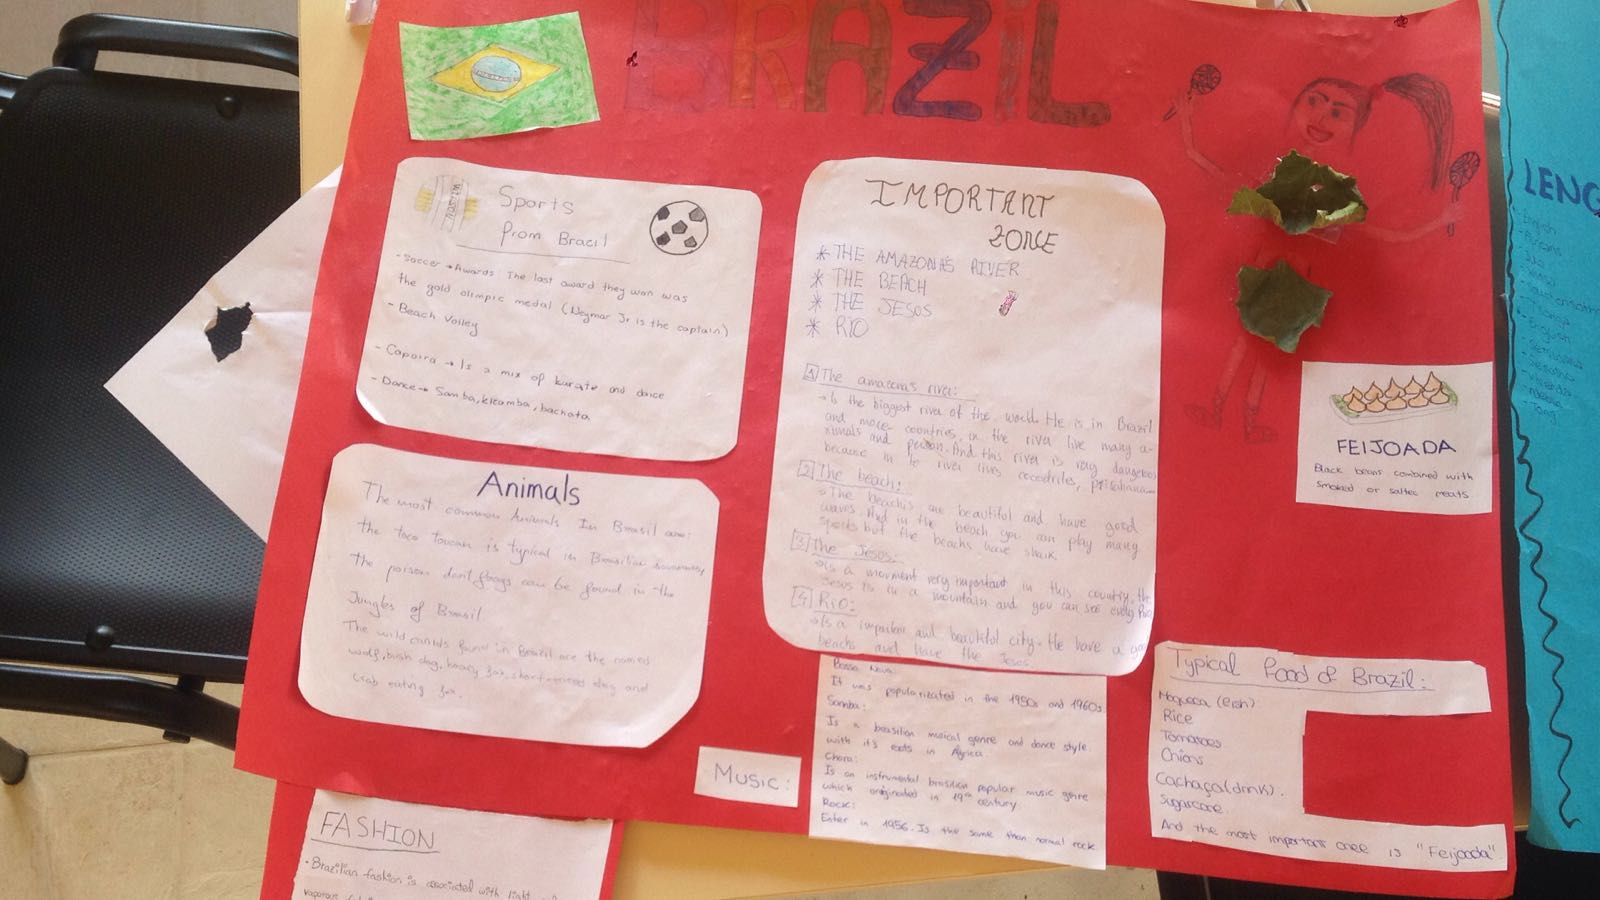 BRAZIL
WILSON
Sports
from Brazil
- Soccer → Awards: The last award they won was
the gold olimpic medal (Neymar Jr is the captain)
- Beach Volley
- Capoira → Is a mix of karate and dance
- Dance → Samba, kizomba, bachata
Animals
The most common Animals In Brasil are:
the toco toucan is typical in Brasilian
the poison dart frogs can be found in the
Jungles of Brasil
The wild canids found in Brazil are the named
wolf, bush dog, hoary fox, short-eared dog and
crab eating fox.
FASHION
- Brazilian fashion is associated with light
vaporous
IMPORTANT
ZONE
* THE AMAZONA'S RIVER
* THE BEACH
* THE JESOS
* RIO
1 The amazona's river:
→ Is the biggest river of the world. He is in Brazil
and more countries, in the river live many a-
nimals and person. And this river is very dangerous
because in to river lives cocodriles,
2 The beach:
→ The beachs are beautiful and have good
waves. And in the beach you can play many
sports but the beachs have shark.
3 The Jesos:
→ Is a monment very important in this country, the
Jesus is in a mountain and you can see every Rio
4 Rio:
→ Is a important and beautiful city. He have a good
beachs and have the Jesos.
Music:
Bossa Nova:
It was popularizated in the 1950s and 1960s.
Samba:
Is a brasilian musical genre and dance style.
with it's roots in Africa.
Choro:
Is an instrumental brasilian popular music genre
which originated in 19th century.
Rock:
Enter in 1956. Is the same than normal rock
FEIJOADA
Black beans combined with
smoked or salted meats
Typical food of Brazil:
Moqueca (fish)
Rice
Tomatoes
Onions
Cachaça (drink).
Sugarcane
And the most important one is "Feijoada".
LENG
English